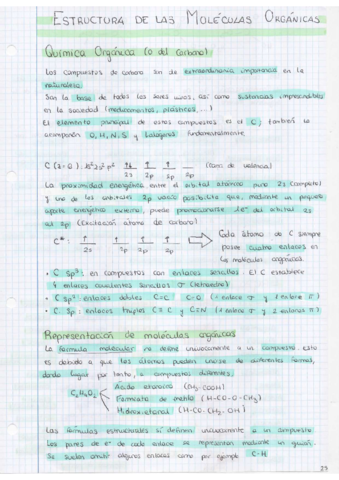 ESTRUCTURA DE LAS MOLÉCULAS ORGÁNICAS
Química Orgánica (o del carbono)
Los compuestos de carbono son de extraordinaria importancia en la
naturaleza.
Son la base de todos los seres vivos, así como sustancias imprescindibles
en la sociedad (medicamentos, plásticos ...)
El elemento principal de estos compuestos es el C; también lo
acompañan O, H, N, S y halógenos fundamentalmente.
C (z=6): 1s² 2s² 2p²
2s 2p 2p 2p
(capa de valencia)
La proximidad energética entre el orbital atómico puro 2s (completo)
y uno de los orbitales 2p vacío posibilita que, mediante un pequeño
aporte energético externo, pueda promocionarse 1e⁻ del orbital 2s
al 2p (Excitación átomo de carbono)
C*: 2s 2p 2p 2p
Cada átomo de C siempre
posee cuatro enlaces en
las moléculas orgánicas.
• C sp³: en compuestos con enlaces sencillos. El C establece
4 enlaces covalentes sencillos σ (tetraedro)
• C sp²: enlaces dobles C=C C=O (1 enlace σ y 1 enlace π)
• C sp: enlaces triples C≡C y C≡N (1 enlace σ y 2 enlaces π)
Representación de moléculas orgánicas
La fórmula molecular no define unívocamente a un compuesto. Esto
es debido a que los átomos pueden unirse de diferentes formas,
dando lugar, por tanto, a compuestos diferentes.
C₂H₄O₂
Ácido etanoico (CH₃-COOH)
Formiato de metilo (H-CO-O-CH₃)
Hidroxietanal (H-CO-CH₂-OH)
Las fórmulas estructurales sí definen unívocamente a un compuesto.
Los pares de e⁻ de cada enlace se representan mediante un guión.
Se suelen omitir algunos enlaces como por ejemplo C-H